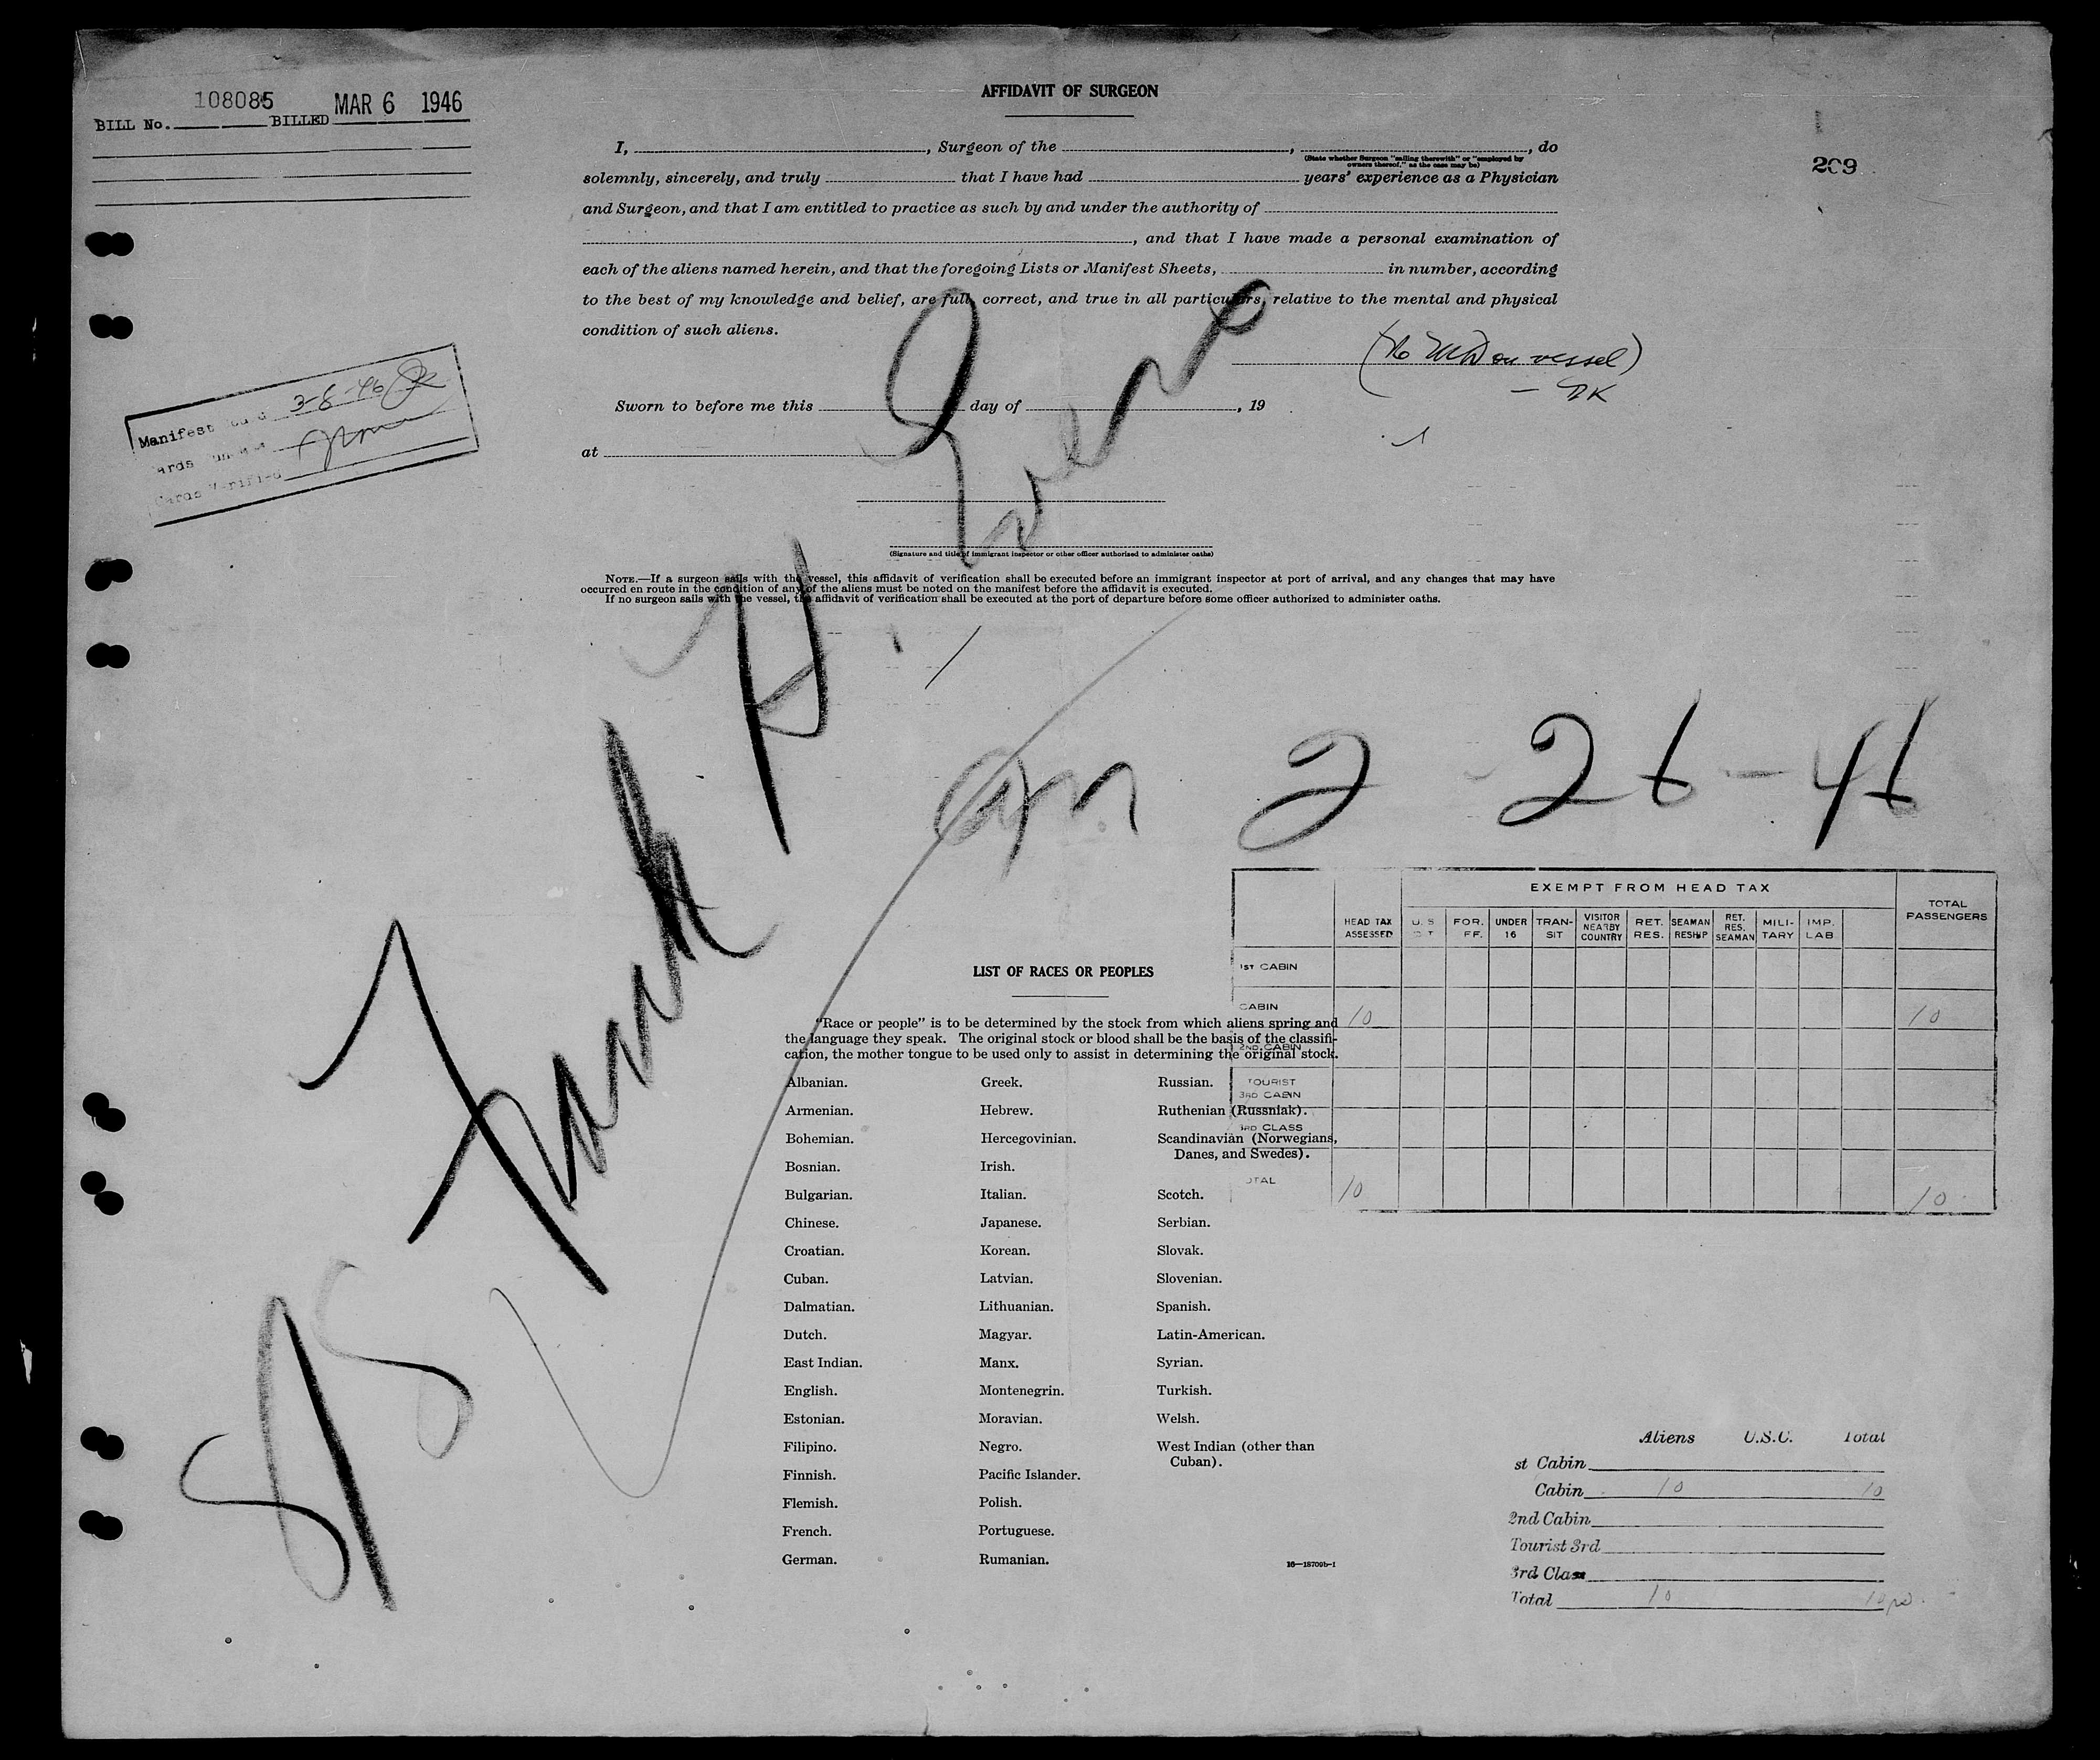 108085 MAR 6 1946
BILL No. BILLED
AFFIDAVIT OF SURGEON
209
I, , Surgeon of the , , do
(State whether Surgeon "sailing therewith" or "employed by
owners thereof," as the case may be)
solemnly, sincerely, and truly that I have had years' experience as a Physician
and Surgeon, and that I am entitled to practice as such by and under the authority of
, and that I have made a personal examination of
each of the aliens named herein, and that the foregoing Lists or Manifest Sheets, in number, according
to the best of my knowledge and belief, are full, correct, and true in all particulars, relative to the mental and physical
condition of such aliens.
(No MD on vessel)
— JK
Sworn to before me this day of , 19
at
(Signature and title of immigrant inspector or other officer authorized to administer oaths)
Manifest 3-8-46
Cards Verified
NOTE.—If a surgeon sails with the vessel, this affidavit of verification shall be executed before an immigrant inspector at port of arrival, and any changes that may have
occurred en route in the condition of any of the aliens must be noted on the manifest before the affidavit is executed.
If no surgeon sails with the vessel, the affidavit of verification shall be executed at the port of departure before some officer authorized to administer oaths.
S/S Frank H. Evers
2 - 26 - 46
EXEMPT FROM HEAD TAX
HEAD TAX ASSESSED
FOR.
UNDER 16
TRAN- SIT
VISITOR NEARBY COUNTRY
RET. RES.
SEAMAN RESHIP
RET. RES. SEAMAN
MILI- TARY
IMP. LAB
TOTAL PASSENGERS
1ST CABIN
CABIN 10 10
2ND CABIN
TOURIST
3RD CABIN
3RD CLASS
TOTAL 10 10
LIST OF RACES OR PEOPLES
"Race or people" is to be determined by the stock from which aliens spring and
the language they speak. The original stock or blood shall be the basis of the classifi-
cation, the mother tongue to be used only to assist in determining the original stock.
Albanian. Greek. Russian.
Armenian. Hebrew. Ruthenian (Russniak).
Bohemian. Hercegovinian. Scandinavian (Norwegians,
Danes, and Swedes).
Bosnian. Irish.
Bulgarian. Italian. Scotch.
Chinese. Japanese. Serbian.
Croatian. Korean. Slovak.
Cuban. Latvian. Slovenian.
Dalmatian. Lithuanian. Spanish.
Dutch. Magyar. Latin-American.
East Indian. Manx. Syrian.
English. Montenegrin. Turkish.
Estonian. Moravian. Welsh.
Filipino. Negro. West Indian (other than
Cuban).
Finnish. Pacific Islander.
Flemish. Polish.
French. Portuguese.
German. Rumanian.
16—18709b-1
Aliens U.S.C. Total
st Cabin
Cabin 10 10
2nd Cabin
Tourist 3rd
3rd Class
Total 10 10